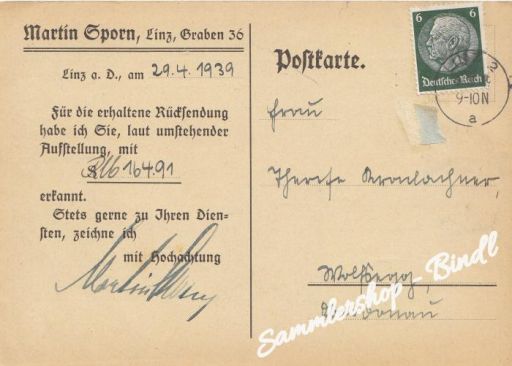 Martin Sporn, Linz, Graben 36
Linz a. D., am 29.4. 1939
Für die erhaltene Rücksendung
habe ich Sie, laut umstehender
Aufstellung, mit
RM 164.91
erkannt.
Stets gerne zu Ihren Dien-
sten, zeichne ich
mit Hochachtung
Martin Sporn
Postkarte.
6 6
Deutsches Reich
2
9-10 N
a
Frau
Therese Kronlachner,
Wolfsegg,
Donau
Sammlershop - Bindl